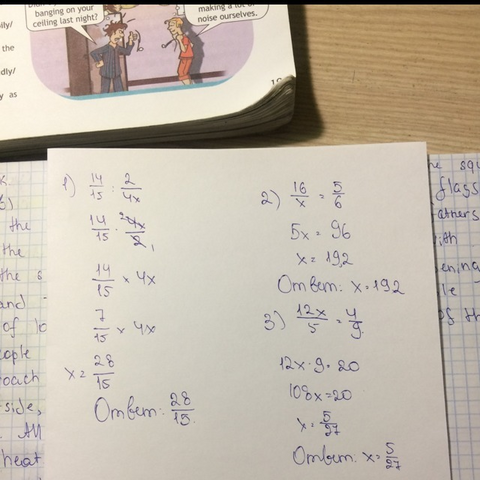 banging on your
ceiling last night?
making a lot of
noise ourselves.
ily/
the
dly/
y as
1) 14/15 : 2/4x
14/15 · 4x/2
14/15 × 4x
7/15 × 4x
x = 28/15
Ответ: 28/15.
2) 16/x = 5/6
5x = 96
x = 19,2
Ответ: x = 19,2
3) 12x/5 = 4/9
12x · 9 = 20
108x = 20
x = 5/27
Ответ: x = 5/27
the
the
the
and
of
ople
oach
side,
All
heat
the squ
glass
athers
ith
ening
le
of th